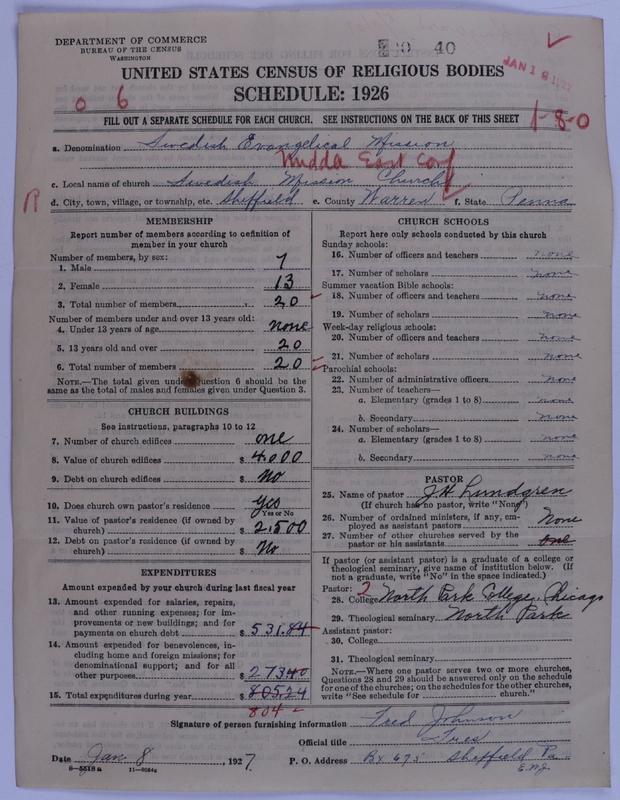 DEPARTMENT OF COMMERCE
BUREAU OF THE CENSUS
WASHINGTON
40
JAN 18 1927
UNITED STATES CENSUS OF RELIGIOUS BODIES
SCHEDULE: 1926
0 6
FILL OUT A SEPARATE SCHEDULE FOR EACH CHURCH. SEE INSTRUCTIONS ON THE BACK OF THIS SHEET
1-8-0
a. Denomination Swedish Evangelical Mission
Midda East Conf
c. Local name of church Swedish Mission Church
R d. City, town, village, or township, etc. Sheffield e. County Warren f. State Penna
MEMBERSHIP
Report number of members according to definition of
member in your church
Number of members, by sex:
1. Male 7
2. Female 13
3. Total number of members 20
Number of members under and over 13 years old:
4. Under 13 years of age none
5. 13 years old and over 20
6. Total number of members 20
NOTE.—The total given under Question 6 should be the
same as the total of males and females given under Question 3.
CHURCH BUILDINGS
See instructions, paragraphs 10 to 12
7. Number of church edifices one
8. Value of church edifices $ 4000
9. Debt on church edifices $ No
10. Does church own pastor's residence Yes
Yes or No
11. Value of pastor's residence (if owned by
church) $ 2500
12. Debt on pastor's residence (if owned by
church) $ No
EXPENDITURES
Amount expended by your church during last fiscal year
13. Amount expended for salaries, repairs,
and other running expenses; for im-
provements or new buildings; and for
payments on church debt $ 531.84
14. Amount expended for benevolences, in-
cluding home and foreign missions; for
denominational support; and for all
other purposes $ 27340
15. Total expenditures during year $ 80524
804
CHURCH SCHOOLS
Report here only schools conducted by this church
Sunday schools:
16. Number of officers and teachers none
17. Number of scholars none
Summer vacation Bible schools:
18. Number of officers and teachers none
19. Number of scholars none
Week-day religious schools:
20. Number of officers and teachers none
21. Number of scholars none
Parochial schools:
22. Number of administrative officers none
23. Number of teachers—
a. Elementary (grades 1 to 8) none
b. Secondary none
24. Number of scholars—
a. Elementary (grades 1 to 8) none
b. Secondary none
PASTOR
25. Name of pastor J.H. Lundgren
(If church has no pastor, write "None")
26. Number of ordained ministers, if any, em-
ployed as assistant pastors None
27. Number of other churches served by the
pastor or his assistants one
If pastor (or assistant pastor) is a graduate of a college or
theological seminary, give name of institution below. (If
not a graduate, write "No" in the space indicated.)
Pastor: 2
28. College North Park College, Chicago
29. Theological seminary North Park
Assistant pastor:
30. College
31. Theological seminary
NOTE.—Where one pastor serves two or more churches,
Questions 28 and 29 should be answered only on the schedule
for one of the churches; on the schedules for the other churches,
write "See schedule for church."
Signature of person furnishing information Fred Johnson
Official title Tres
Date Jan 8, 1927 P. O. Address Bx 675 Sheffield Pa
8—5518a 11—9064a